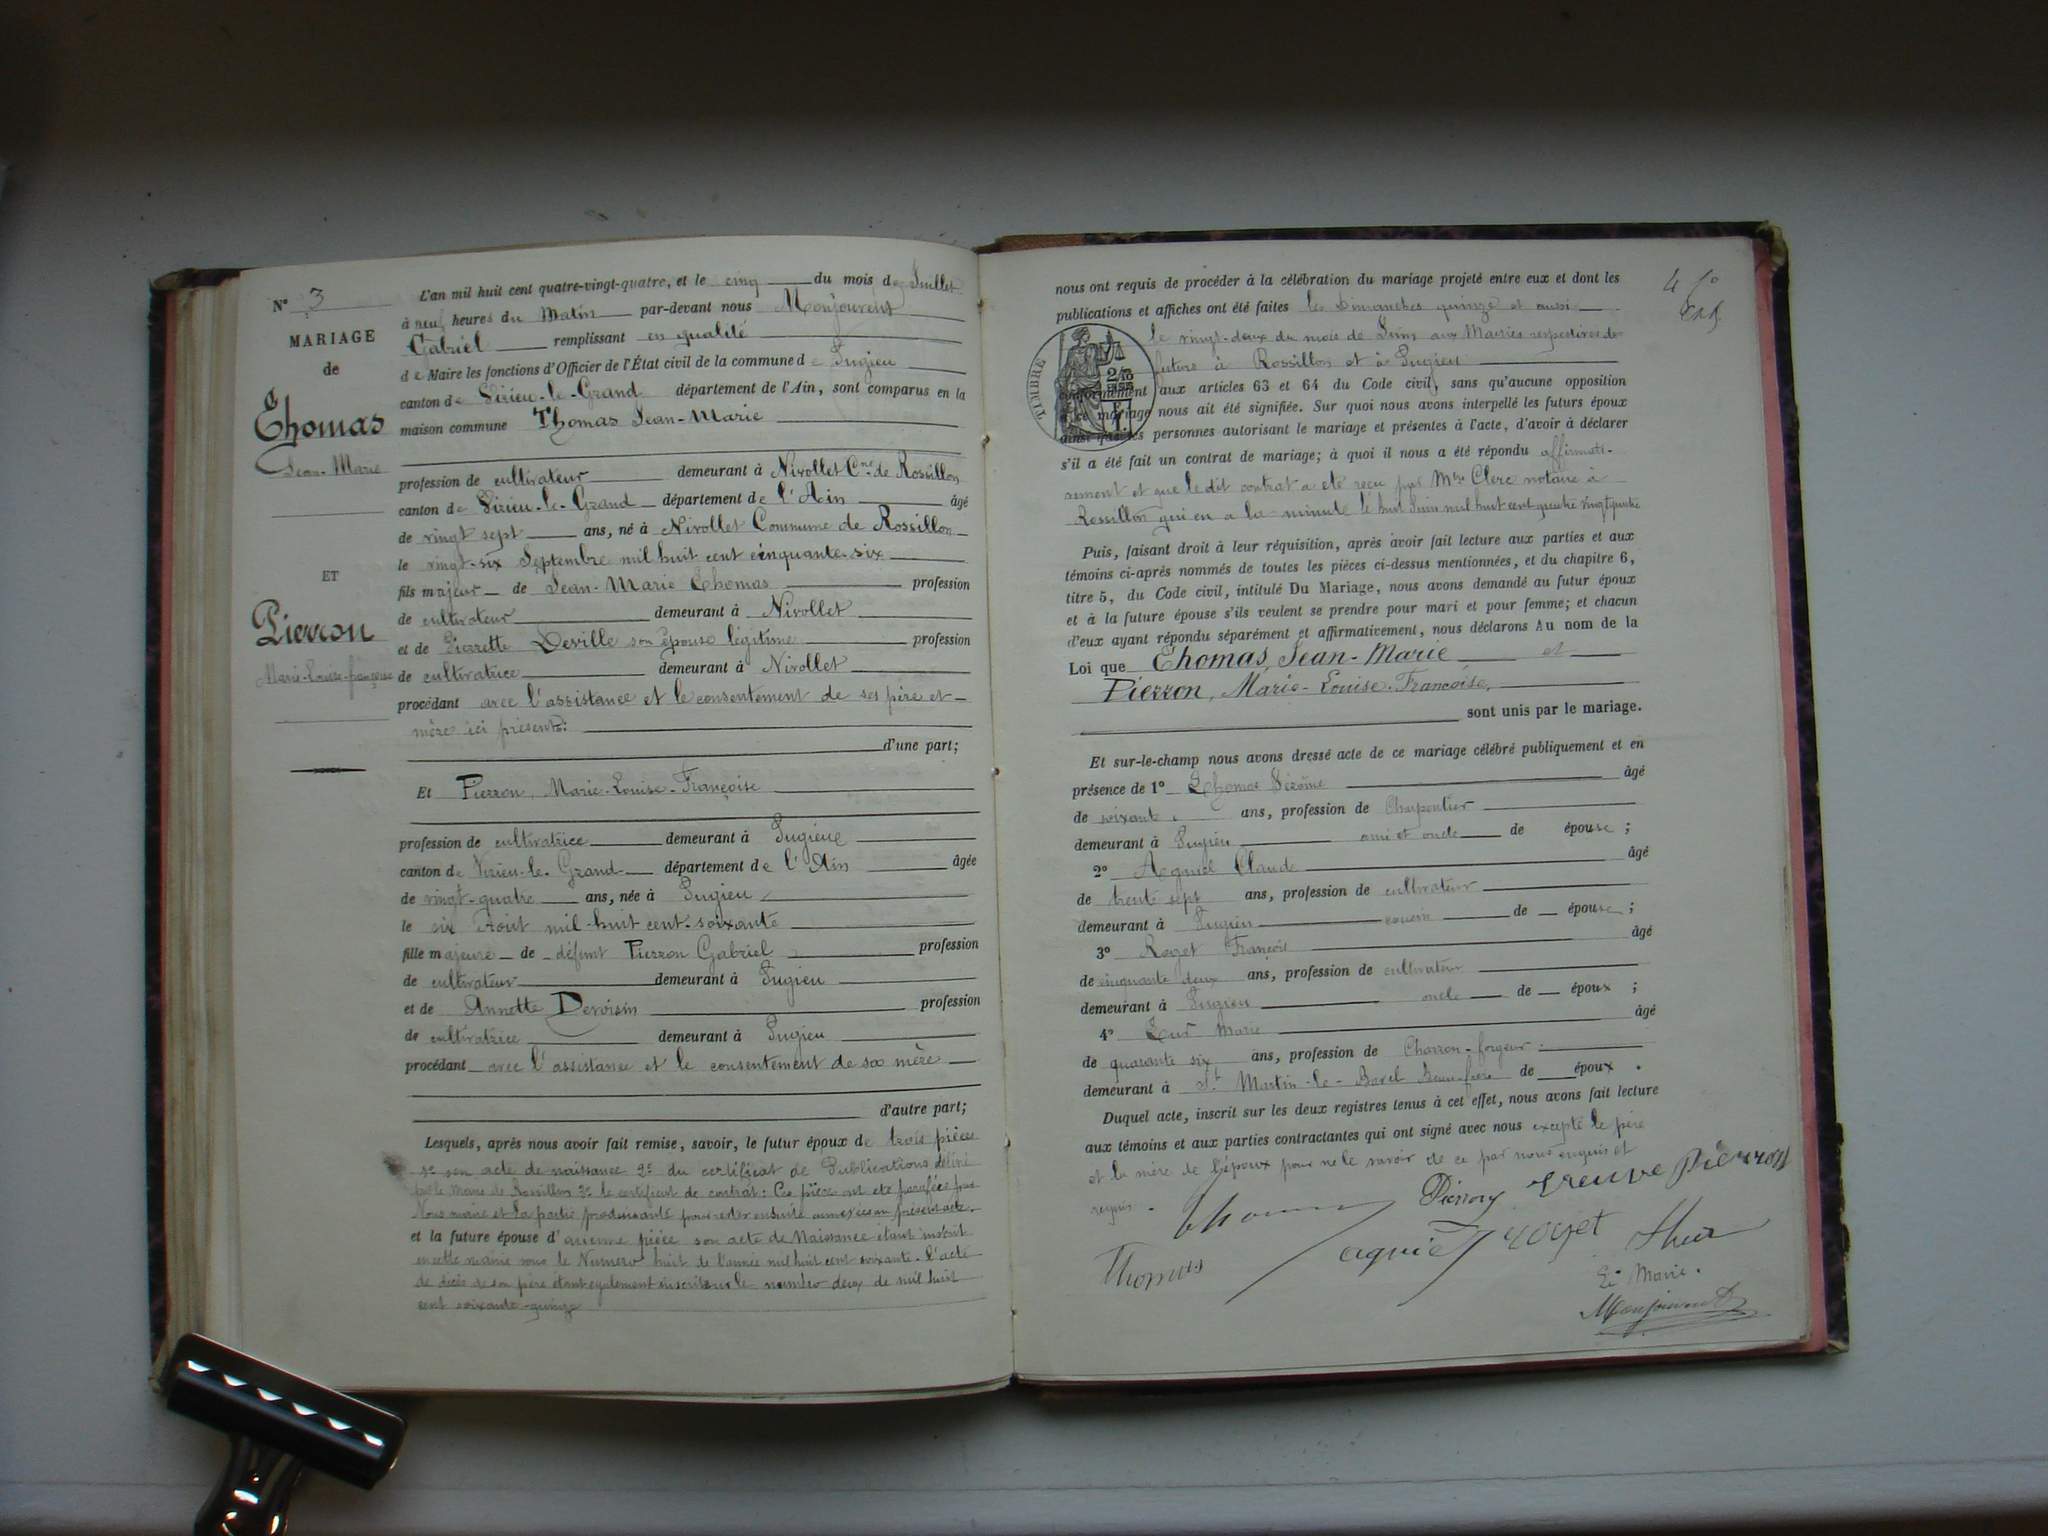 N° 3
MARIAGE
de
Thomas
Jean-Marie
ET
Pierron
Marie-Louise-françoise
L'an mil huit cent quatre-vingt-quatre, et le cinq du mois de Juillet
à neuf heures du Matin par-devant nous Monjouvent
Gabriel remplissant en qualité
de Maire les fonctions d'Officier de l'État civil de la commune de Pugieu
canton de Virieu-le-Grand département de l'Ain, sont comparus en la
maison commune Thomas Jean-Marie
profession de cultivateur demeurant à Nivollet Cne de Rossillon
canton de Virieu-le-Grand département de l'Ain âgé
de vingt sept ans, né à Nivollet Commune de Rossillon
le vingt-six Septembre mil huit cent cinquante-six
fils majeur de Jean-Marie Thomas profession
de cultivateur demeurant à Nivollet
et de Pierrette Deville son épouse légitime profession
de cultivatrice demeurant à Nivollet
procédant avec l'assistance et le consentement de ses père et
mère ici présents.
d'une part;
Et Pierron, Marie-Louise-Françoise
profession de cultivatrice demeurant à Pugieu
canton de Virieu-le-Grand département de l'Ain âgée
de vingt-quatre ans, née à Pugieu
le six Aout mil-huit cent-soixante
fille majeure de défunt Pierron Gabriel profession
de cultivateur demeurant à Pugieu
et de Annette Devoisin profession
de cultivatrice demeurant à Pugieu
procédant avec l'assistance et le consentement de sa mère
d'autre part;
Lesquels, après nous avoir fait remise, savoir, le futur époux de trois pièces
1° son acte de naissance 2° du certificat de Publications délivré
par le Maire de Rossillon 3° le certificat de contrat: Ces pièces ont été parafées par
Nous maire et la partie produisante pour rester ensuite annexées au présent acte.
et la future épouse d'aucune pièce son acte de Naissance étant inscrit
en cette mairie sous le Numéro huit de l'année mil huit cent soixante. L'acte
de décès de son père étant également inscrit sur le numéro deux de mil huit
cent soixante-quinze
4 f°
nous ont requis de procéder à la célébration du mariage projeté entre eux et dont les
publications et affiches ont été faites les Dimanches quinze et aussi
le vingt-deux du mois de Juin aux Mairies respectives de
futurs à Rossillon et à Pugieu
TIMBRE
conformément aux articles 63 et 64 du Code civil, sans qu'aucune opposition
à ce mariage nous ait été signifiée. Sur quoi nous avons interpellé les futurs époux
ainsi que les personnes autorisant le mariage et présentes à l'acte, d'avoir à déclarer
s'il a été fait un contrat de mariage; à quoi il nous a été répondu affirmati-
vement et que le dit contrat a été reçu par Mtre Clerc notaire à
Rossillon qui en a la minute le huit Juin mil huit cent quatre vingt quatre
Puis, faisant droit à leur réquisition, après avoir fait lecture aux parties et aux
témoins ci-après nommés de toutes les pièces ci-dessus mentionnées, et du chapitre 6,
titre 5, du Code civil, intitulé Du Mariage, nous avons demandé au futur époux
et à la future épouse s'ils veulent se prendre pour mari et pour femme; et chacun
d'eux ayant répondu séparément et affirmativement, nous déclarons Au nom de la
Loi que Thomas, Jean-Marie et
Pierron, Marie-Louise-Françoise,
sont unis par le mariage.
Et sur-le-champ nous avons dressé acte de ce mariage célébré publiquement et en
présence de 1° Thomas Jérôme âgé
de soixante ans, profession de Charpentier
demeurant à Pugieu ami et oncle de épouse;
2° Aguiel Claude âgé
de trente sept ans, profession de cultivateur
demeurant à Pugieu cousin de épouse;
3° Roget François âgé
de cinquante deux ans, profession de cultivateur
demeurant à Pugieu oncle de époux;
4° Marie âgé
de quarante six ans, profession de Charron-forgeur
demeurant à St Martin-le-Bavel Beau-frère de époux.
Duquel acte, inscrit sur les deux registres tenus à cet effet, nous avons fait lecture
aux témoins et aux parties contractantes qui ont signé avec nous excepté le père
et la mère de l'époux pour ne le savoir de ce par nous enquis et
requis.
Thomas Pierron veuve pierron
Thomas roget
Le Maire.
Monjouvent